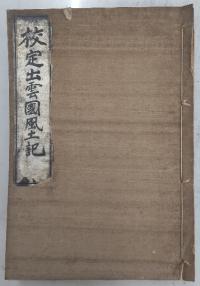 校定出雲國風土記